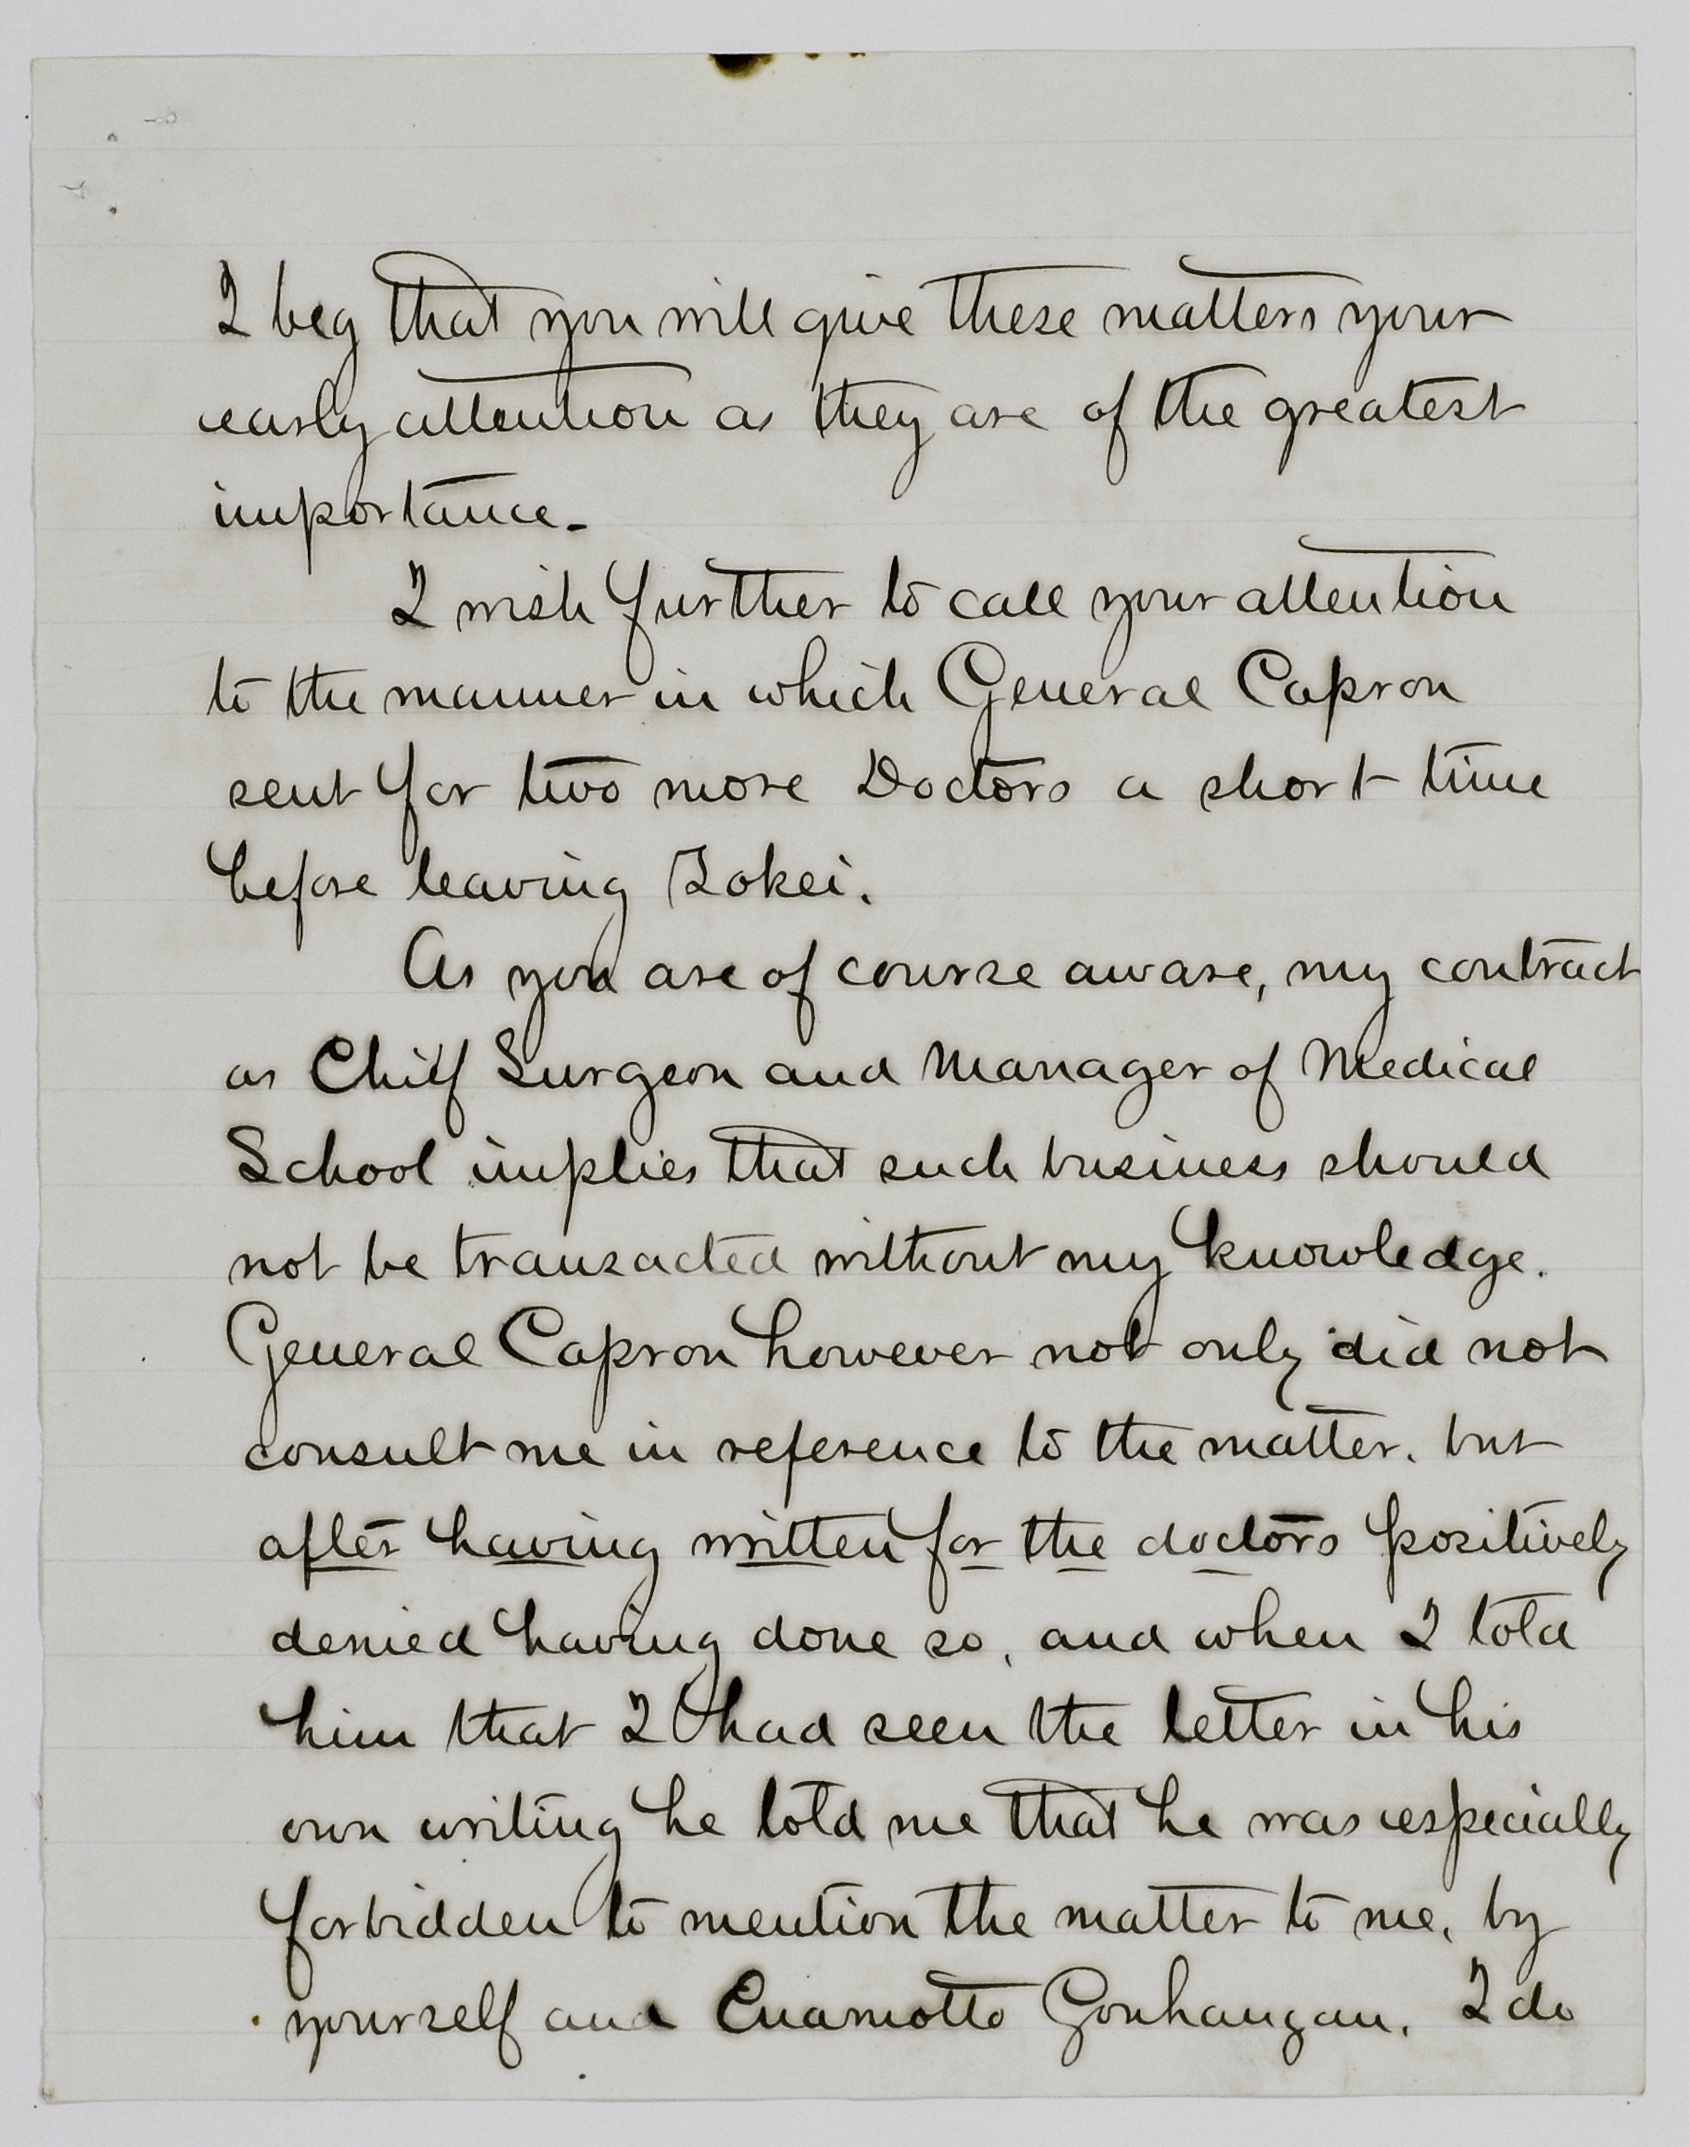 I beg that you will give these matters your
early attention as they are of the greatest
importance.
I wish further to call your attention
to the manner in which General Capron
sent for two more Doctors a short time
before leaving Tokei.
As you are of course aware, my contract
as Chief Surgeon and Manager of Medical
School implies that such business should
not be transacted without my knowledge.
General Capron however not only did not
consult me in reference to the matter, but
after having written for the doctors positively
denied having done so, and when I told
him that I had seen the letter in his
own writing he told me that he was especially
forbidden to mention the matter to me, by
yourself and Enamotto Gonhangan. I do